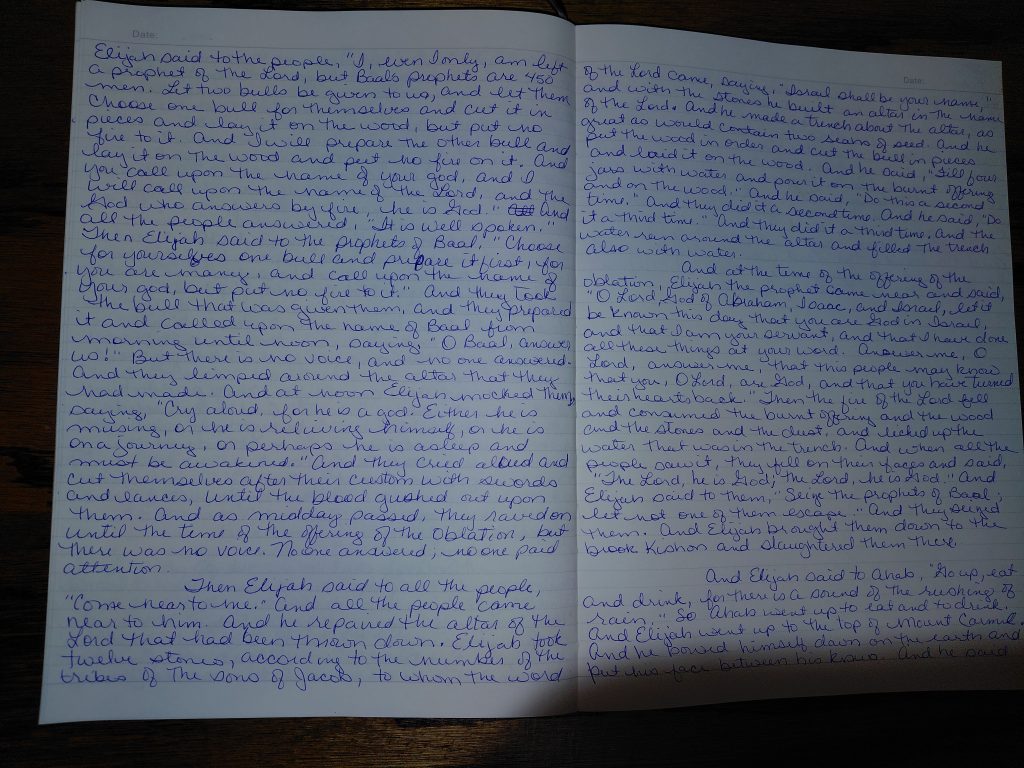 Date:
Elijah said to the people, "I, even I only, am left
a prophet of the Lord, but Baals prophets are 450
men. Let two bulls be given to us, and let them
choose one bull for themselves and cut it in
pieces and lay it on the wood, but put no
fire to it. And I will prepare the other bull and
lay it on the wood and put no fire on it. And
you call upon the name of your god, and I
will call upon the name of the Lord, and the
God who answers by fire, he is God." And
all the people answered, "It is well spoken."
Then Elijah said to the prophets of Baal, "Choose
for yourselves one bull and prepare it first, for
you are many, and call upon the name of
your god, but put no fire to it." And they took
the bull that was given them, and they prepared
it and called upon the name of Baal from
morning until noon, saying, "O Baal, answer
us!" But there is no voice, and no one answered.
And they limped around the altar that they
had made. And at noon Elijah mocked them,
saying, "Cry aloud, for he is a god. Either he is
missing, or he is relieving himself, or he is
on a journey, or perhaps he is asleep and
must be awakened." And they cried aloud and
cut themselves after their custom with swords
and lances, until the blood gushed out upon
them. And as midday passed, they raved on
until the time of the offering of the oblation, but
there was no voice. No one answered; no one paid
attention.
Then Elijah said to all the people,
"Come near to me." And all the people came
near to him. And he repaired the altar of the
Lord that had been thrown down. Elijah took
twelve stones, according to the number of the
tribes of the sons of Jacob, to whom the word
Date:
of the Lord came, saying, "Israel shall be your name,"
and with the stones he built an altar in the name
of the Lord. And he made a trench about the altar, as
great as would contain two seahs of seed. And he
put the wood in order and cut the bull in pieces
and laid it on the wood. And he said, "Fill four
jars with water and pour it on the burnt offering
and on the wood." And he said, "Do this a second
time." And they did it a second time. And he said, "Do
it a third time." And they did it a third time. And the
water ran around the altar and filled the trench
also with water.
And at the time of the offering of the
oblation, Elijah the prophet came near and said,
"O Lord, God of Abraham, Isaac, and Israel, let it
be known this day that you are God in Israel,
and that I am your servant, and that I have done
all these things at your word. Answer me, O
Lord, answer me, that this people may know
that you, O Lord, are God, and that you have turned
their hearts back." Then the fire of the Lord fell
and consumed the burnt offering and the wood
and the stones and the dust, and licked up the
water that was in the trench. And when all the
people saw it, they fell on their faces and said,
"The Lord, he is God; the Lord, he is God." And
Elijah said to them, "Seize the prophets of Baal;
let not one of them escape." And they seized
them. And Elijah brought them down to the
brook Kishon and slaughtered them there.
And Elijah said to Ahab, "Go up, eat
and drink, for there is a sound of the rushing of
rain." So Ahab went up to eat and to drink.
And Elijah went up to the top of Mount Carmel.
And he bowed himself down on the earth and
put his face between his knees. And he said